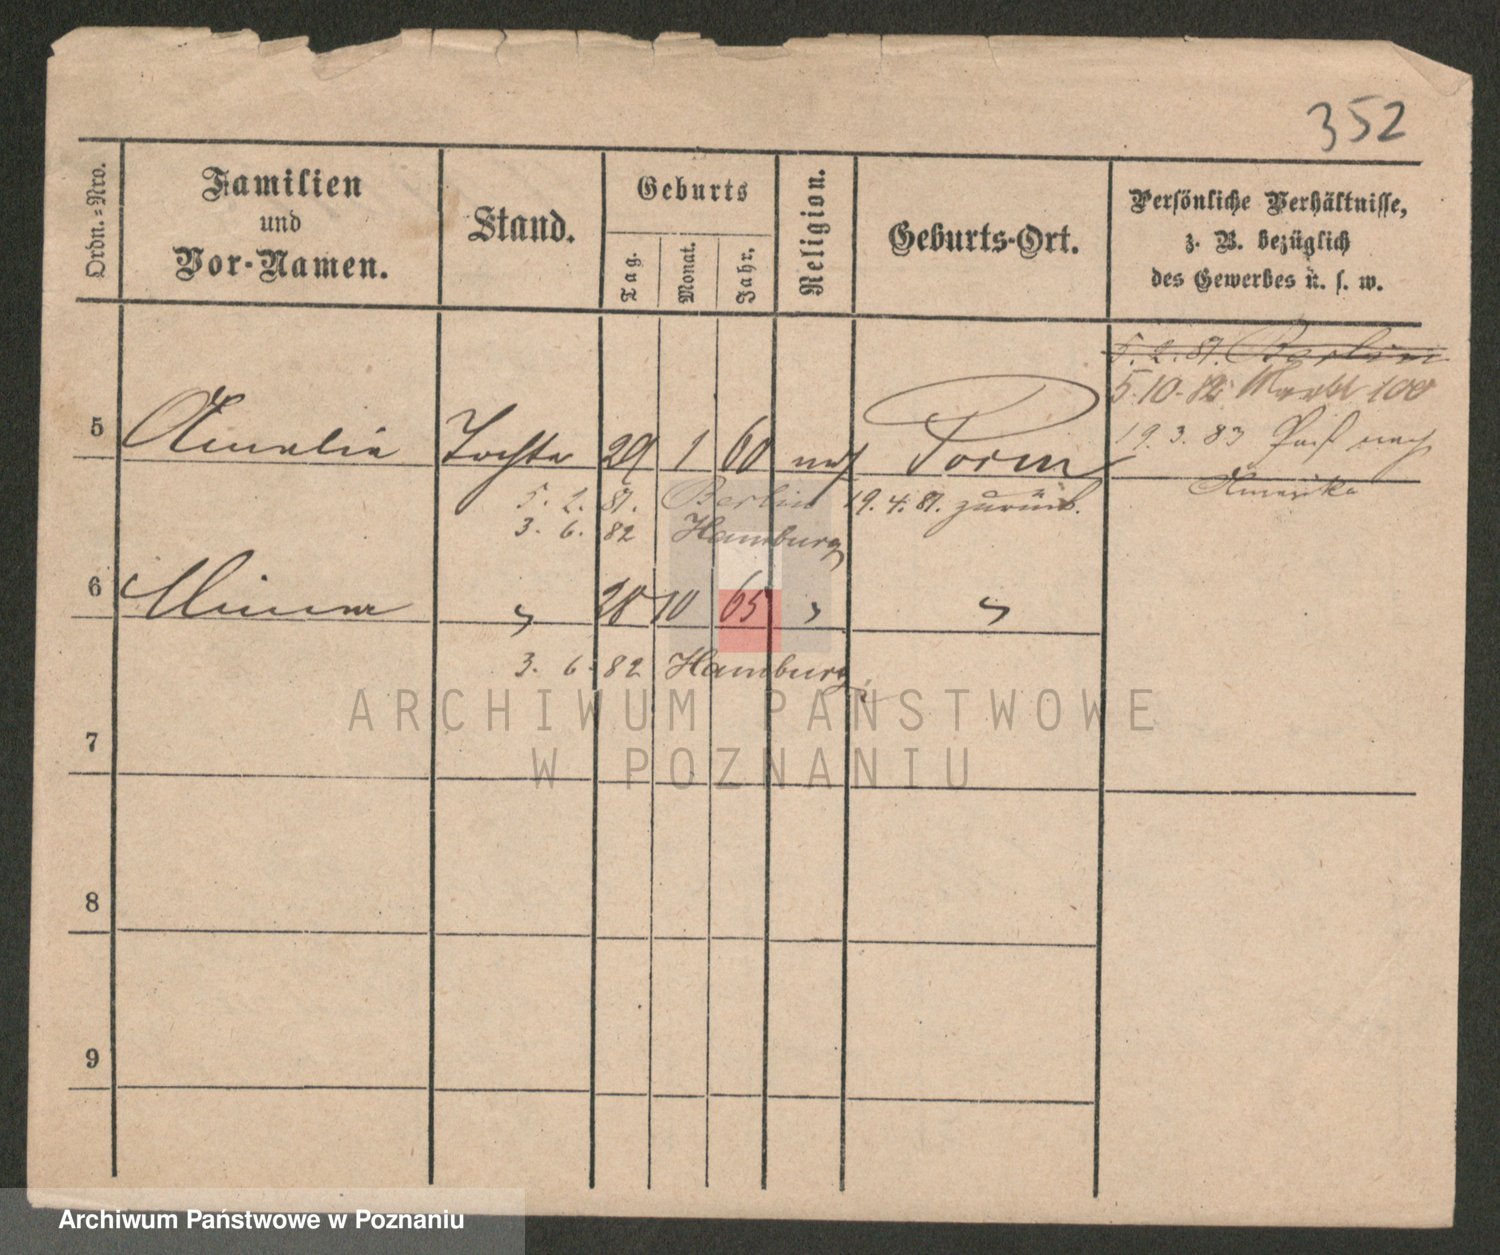 352
Ordn.=Nro.
Familien
und
Vor-Namen.
Stand.
Geburts
Tag.
Monat.
Jahr.
Religion.
Geburts-Ort.
Persönliche Verhältnisse,
z. B. bezüglich
des Gewerbes u. s. w.
5. 2. 81. Berlin
5. 10. 82. 100
19. 3. 83 Paß nach
Amerika
5 Amalia Tochter 29 1 60
5. 2. 81. Berlin 19. 4. 81. zurück.
3. 6. 82 Hamburg
6 Minna " 28 10 65 " "
3. 6. 82 Hamburg
7
8
9
ARCHIWUM PAŃSTWOWE
W POZNANIU
Archiwum Państwowe w Poznaniu